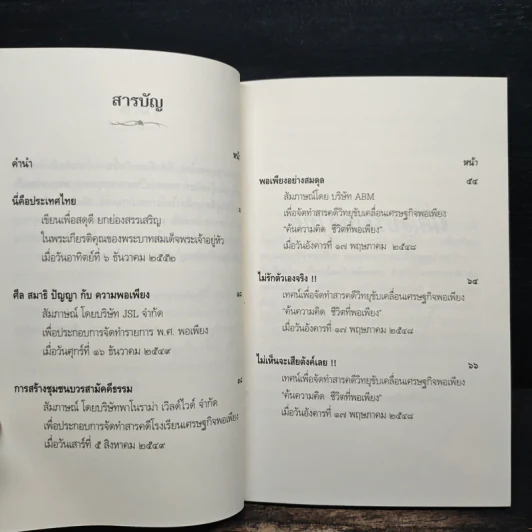 สารบัญ
คำนำ
นี่คือประเทศไทย
เขียนเพื่อสดุดี ยกย่องสรรเสริญ
ในพระเกียรติคุณของพระบาทสมเด็จพระเจ้าอยู่หัว
เมื่อวันอาทิตย์ที่ ๖ ธันวาคม ๒๕๕๒
ศีล สมาธิ ปัญญา กับ ความพอเพียง
สัมภาษณ์ โดยบริษัท JSL จำกัด
เพื่อประกอบการจัดทำรายการ พ.ศ. พอเพียง
เมื่อวันศุกร์ที่ ๑๖ ธันวาคม ๒๕๔๙
การสร้างชุมชนบวรสามัคคีธรรม
สัมภาษณ์ โดยบริษัทพาโนราม่า เวิลด์ไวด์ จำกัด
เพื่อประกอบการจัดทำสารคดีโรงเรียนเศรษฐกิจพอเพียง
เมื่อวันเสาร์ที่ ๕ สิงหาคม ๒๕๔๙
หน้า
พอเพียงอย่างสมดุล ๕๔
สัมภาษณ์โดย บริษัท ABM
เพื่อจัดทำสารคดีวิทยุขับเคลื่อนเศรษฐกิจพอเพียง
"ค้นความคิด ชีวิตที่พอเพียง"
เมื่อวันอังคารที่ ๑๗ พฤษภาคม ๒๕๔๘
ไม่รักตัวเองจริง !! ๖๔
เทศน์เพื่อจัดทำสารคดีวิทยุขับเคลื่อนเศรษฐกิจพอเพียง
"ค้นความคิด ชีวิตที่พอเพียง"
เมื่อวันอังคารที่ ๑๗ พฤษภาคม ๒๕๔๘
ไม่เห็นจะเสียตังค์เลย !! ๖๖
เทศน์เพื่อจัดทำสารคดีวิทยุขับเคลื่อนเศรษฐกิจพอเพียง
"ค้นความคิด ชีวิตที่พอเพียง"
เมื่อวันอังคารที่ ๑๗ พฤษภาคม ๒๕๔๘